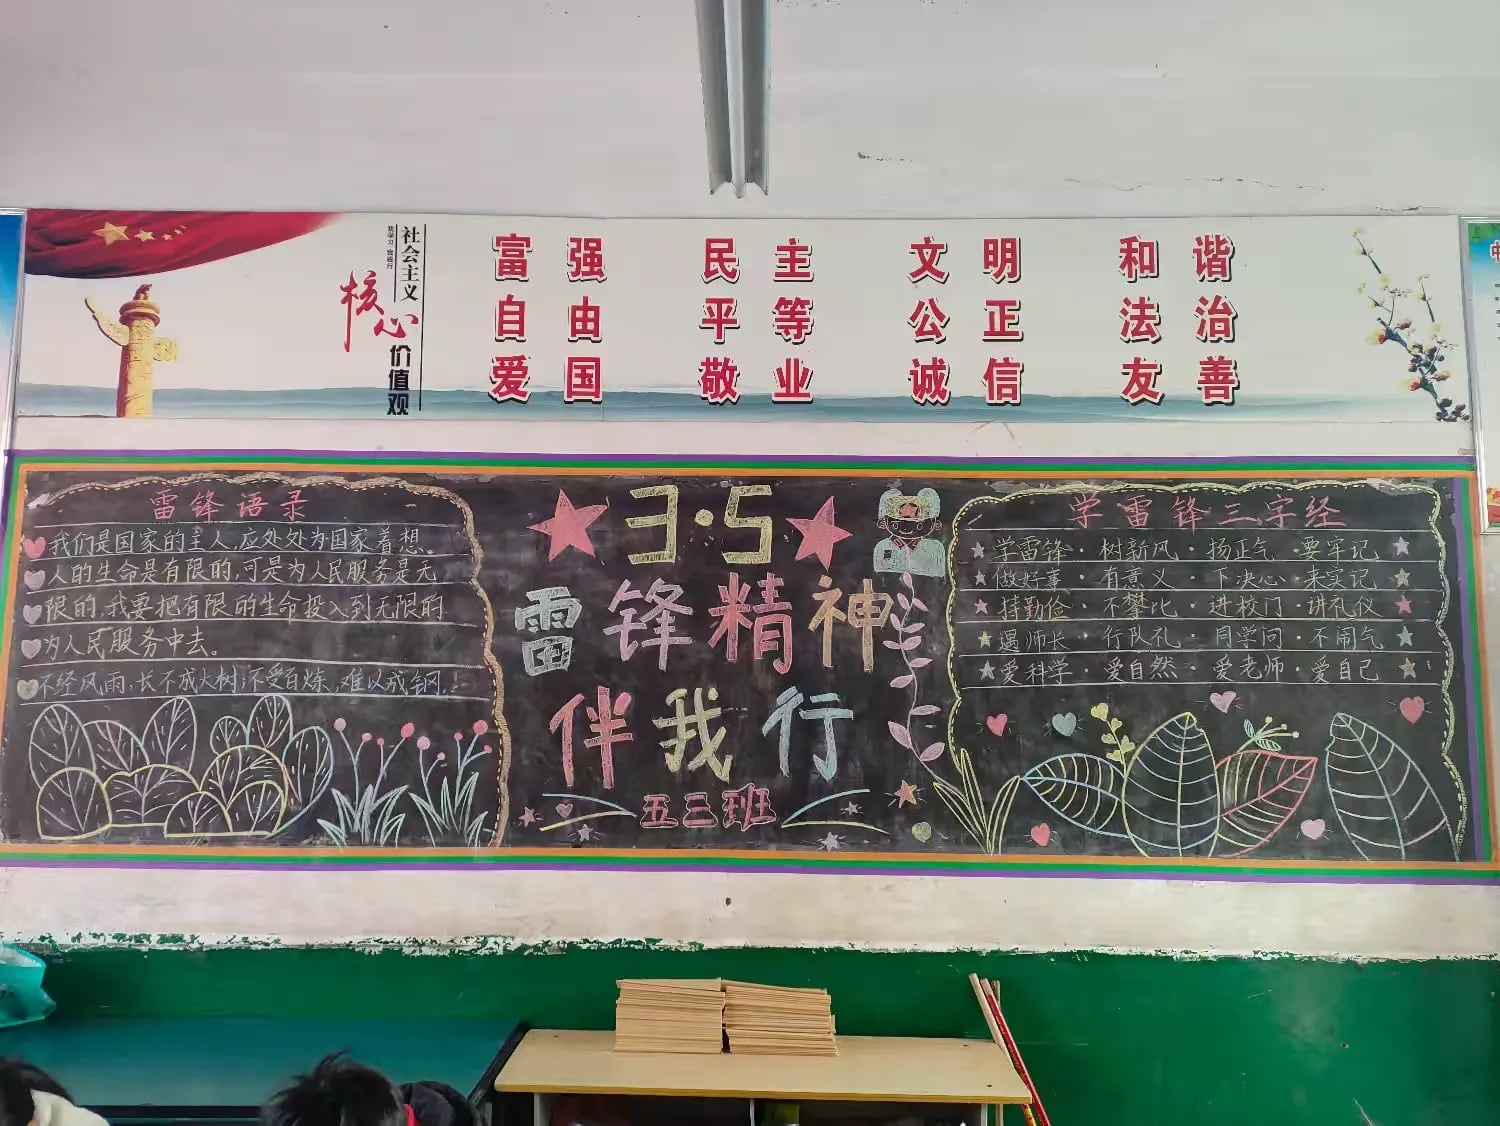 社会主义
我学习 我践行
核心
价值观
富强 民主 文明 和谐
自由 平等 公正 法治
爱国 敬业 诚信 友善
雷锋语录
我们是国家的主人,应处处为国家着想。
人的生命是有限的,可是为人民服务是无
限的,我要把有限的生命投入到无限的
为人民服务中去。
不经风雨,长不成大树;不受百炼,难以成钢。
3·5
雷锋精神
伴我行
五三班
学雷锋三字经
学雷锋·树新风·扬正气·要牢记
做好事·有意义·下决心·来实记
持勤俭·不攀比·进校门·讲礼仪
遇师长·行队礼·同学问·不闹气
爱科学·爱自然·爱老师·爱自己